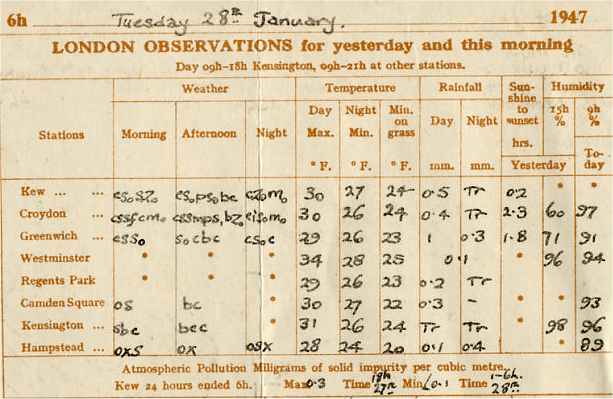 6h Tuesday 28th January. 1947
LONDON OBSERVATIONS for yesterday and this morning
Day 09h–18h Kensington, 09h–21h at other stations.
Stations Weather Temperature Rainfall Sun-shine to sunset Humidity
Morning Afternoon Night Day Max. Night Min. Min. on grass Day Night hrs. 15h % 9h %
° F. ° F. ° F. mm. mm. Yesterday To-day
Kew ... ... 30 27 24 0.5 Tr 0.2 * *
Croydon ... 30 26 24 0.4 Tr 2.3 60 97
Greenwich ... 29 26 23 1 0.3 1.8 71 91
Westminster * * * 34 28 25 0.1 * 96 94
Regents Park * * * 29 26 23 0.2 Tr
Camden Square os bc * 30 27 22 0.3 - * * 93
Kensington ... sbc bec * 31 26 24 Tr Tr * 98 96
Hampstead ... oxs ox osx 28 24 20 0.1 0.4 * * 89
Atmospheric Pollution Miligrams of solid impurity per cubic metre.
Kew 24 hours ended 6h. Max 0.3 Time 18h 27th Min <0.1 Time 1-6h. 28th